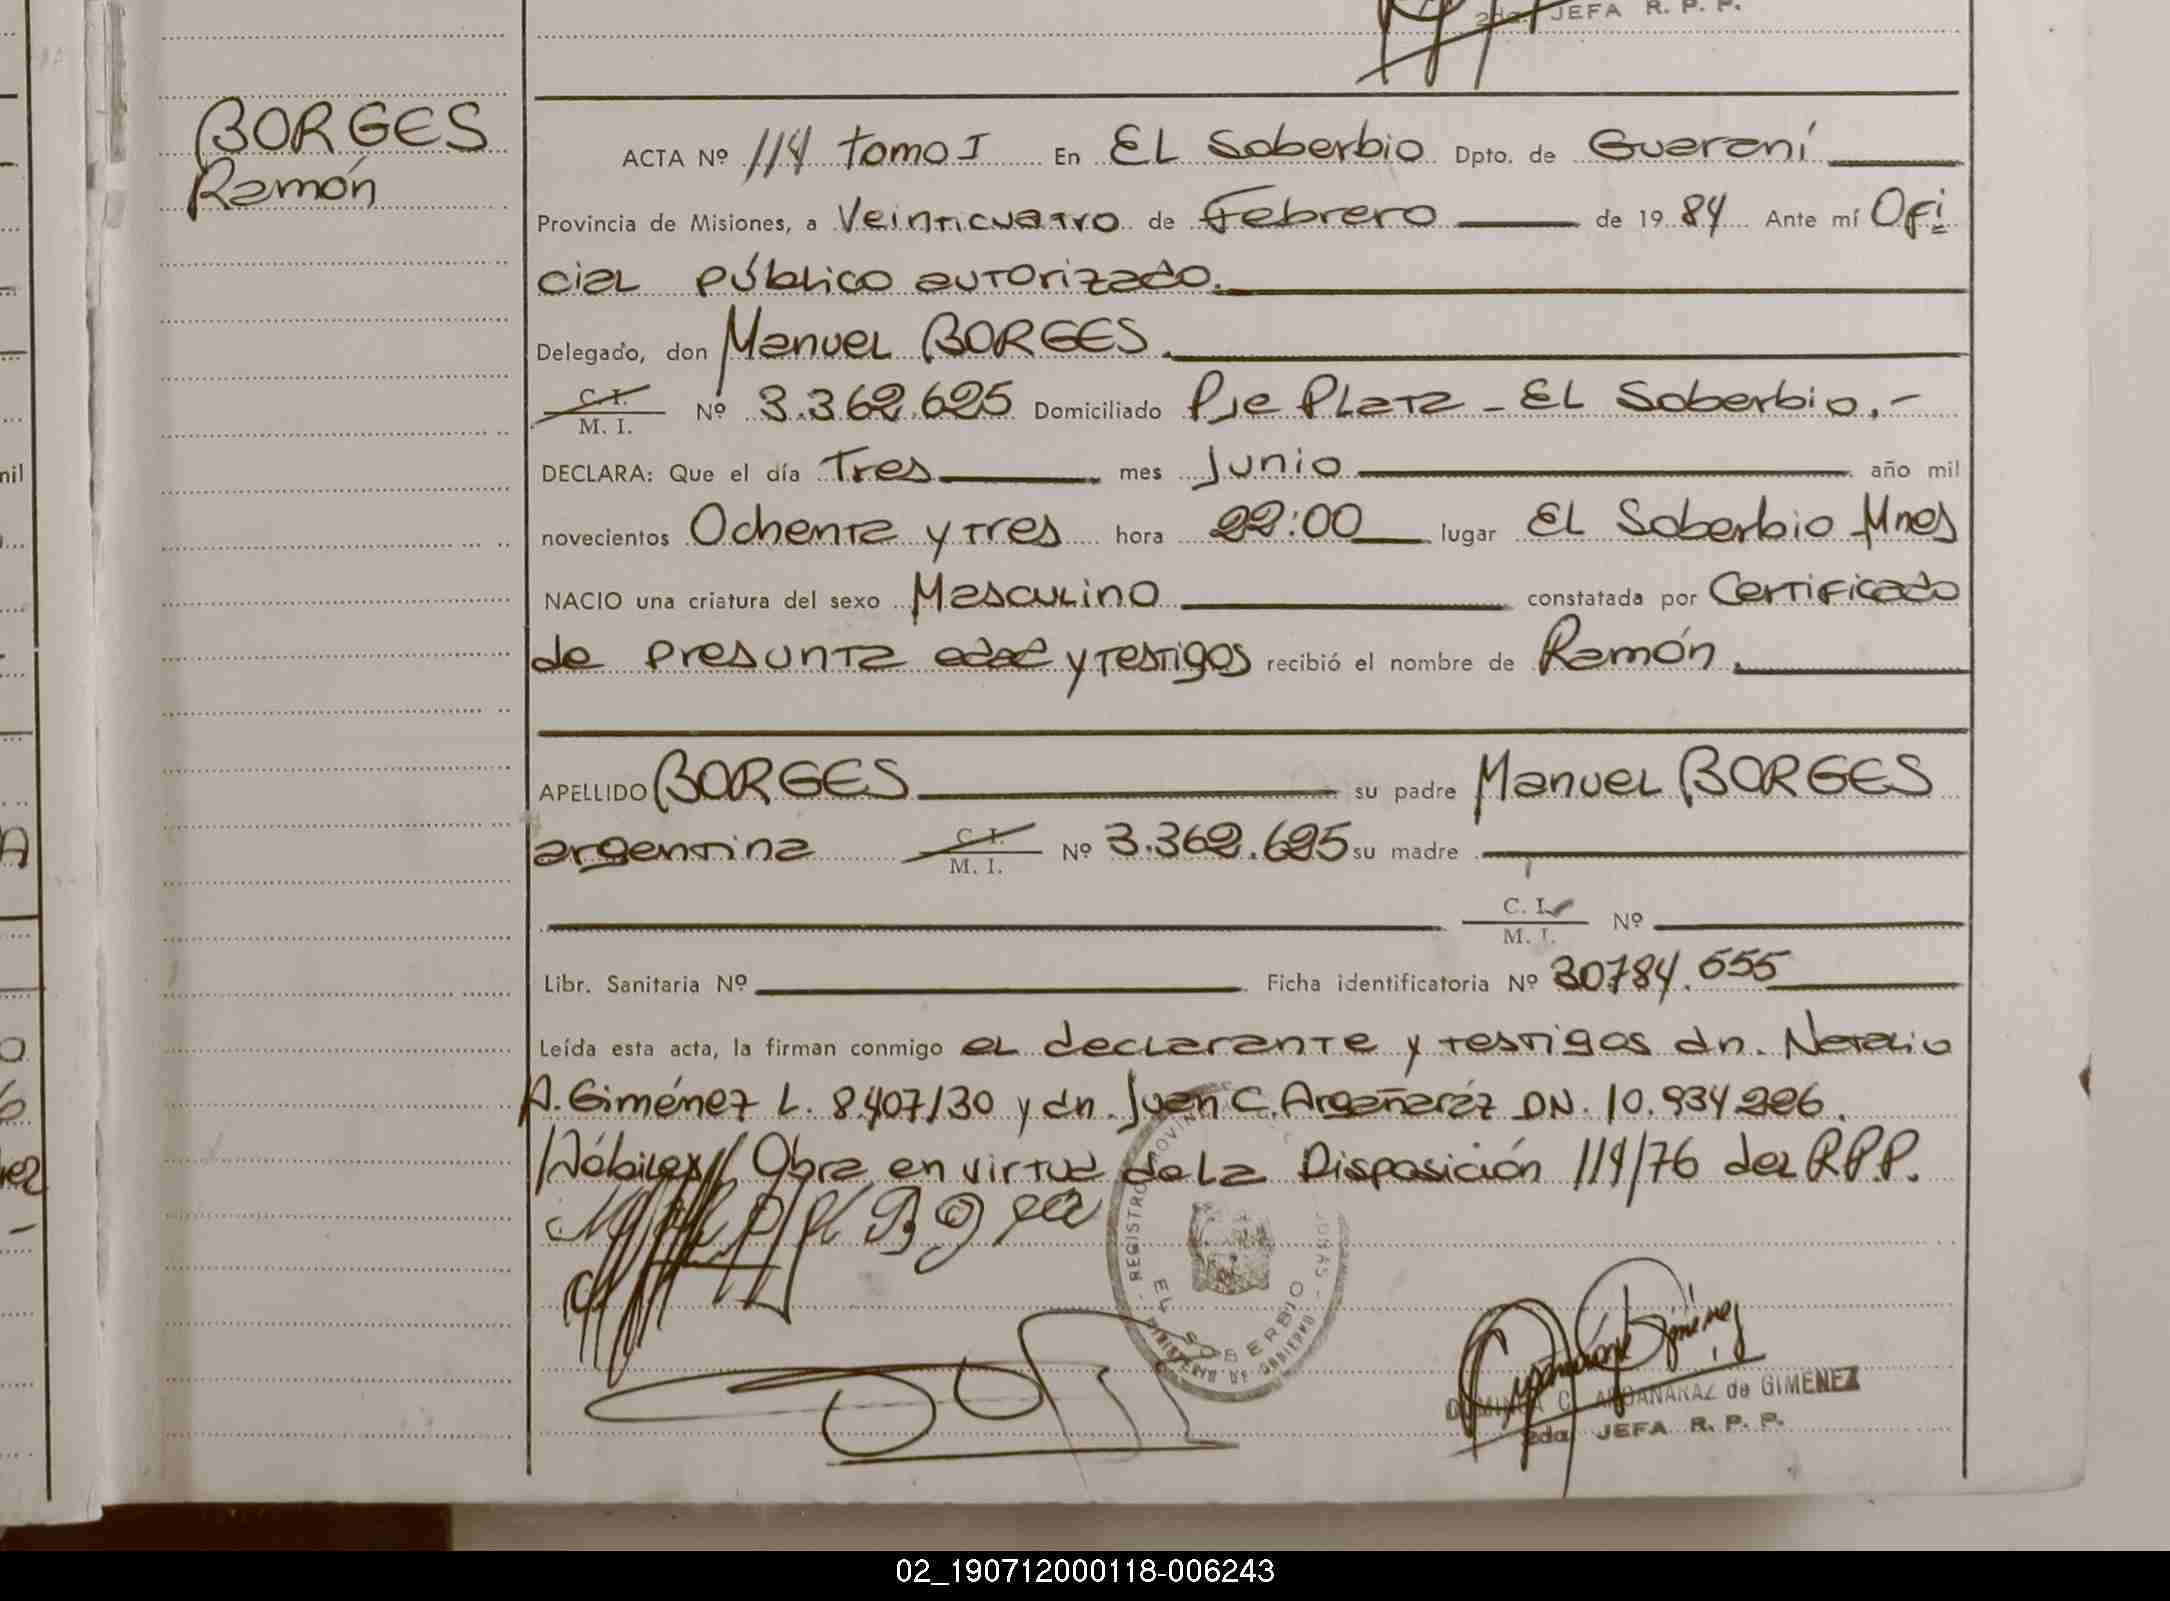 JEFA R. P. P.
BORGES
Ramón
ACTA Nº 114 tomo I En EL Soberbio Dpto. de Guaraní
Provincia de Misiones, a Veinticuatro de Febrero de 1984 Ante mí Ofi
cial público autorizado.
Delegado, don Manuel BORGES.
C. I.
M. I. Nº 3.362.625 Domiciliado Pje Plata - EL Soberbio.-
DECLARA: Que el día Tres mes Junio año mil
novecientos Ochenta y tres hora 22:00 lugar EL Soberbio Mnes
NACIO una criatura del sexo Masculino constatada por Certificado
de presunta edad y testigos recibió el nombre de Ramón.
APELLIDO BORGES su padre Manuel BORGES
argentina C. I. M. I. Nº 3.362.625 su madre
C. I. M. I. Nº
Libr. Sanitaria Nº Ficha identificatoria Nº 30784.555
Leída esta acta, la firman conmigo el declarante y testigos dn. Natalio
A. Giménez L. 8.407130 y dn. Juan C. Argañaráz DN. 10.934.226.
/Hábiles// Obra en virtud de la Disposición 114/76 del R.P.P.
REGISTRO
EL SOBERBIO
MINISTERIO DE GOBIERNO
C. ARGAÑARAZ de GIMENEZ
2da. JEFA R. P. P.
02_190712000118-006243